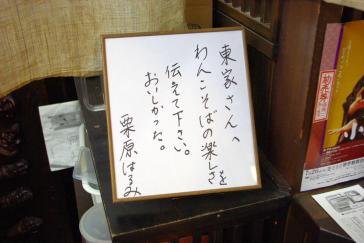 東家さんへ
わんこそばの楽しさを
伝えて下さい。
おいしかった。
栗原はるみ